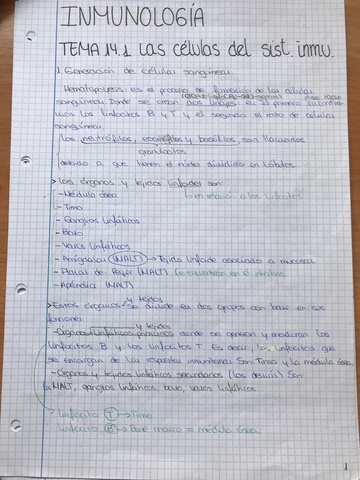 INMUNOLOGÍA
TEMA 14.1 Las células del sist. inmu.
1. Generación de células sanguíneas.
Hematopoyesis: es el proceso de formación de las células
sanguíneas. Donde se crean dos linajes en el primero encontra-
mos los linfocitos B y T y el segundo el resto de células
sanguíneas.
Los neutrófilos, eosinófilos y basófilos, son llamados
granulocitos
debido a que tienen el núcleo dividido en lóbulos.
> Los órganos y tejidos linfoides son:
- Médula ósea
en relación a los linfocitos
- Timo
- Ganglios linfáticos
- Bazo
- Vasos linfáticos
- Amígdalas (MALT) → Tejido linfoide asociado a mucosas
- Placas de Peyer (MALT) Se encuentran en el intestino
- Apéndice (MALT)
> Estos órganos y tejidos se divide en dos grupos con base en sus
funciones:
- Órganos y tejidos linfáticos primarios donde se generan y maduran los
linfocitos B y los linfocitos T. Es decir, los linfocitos que
se encargan de las respuestas inmunitarias. Son Timo y la médula ósea.
- Órganos y tejidos linfáticos secundarios (los demás) Son:
MALT, ganglios linfáticos, bazo, vasos linfáticos
Linfocito T → Timo
Linfocito B → Bone marrow = médula ósea
1